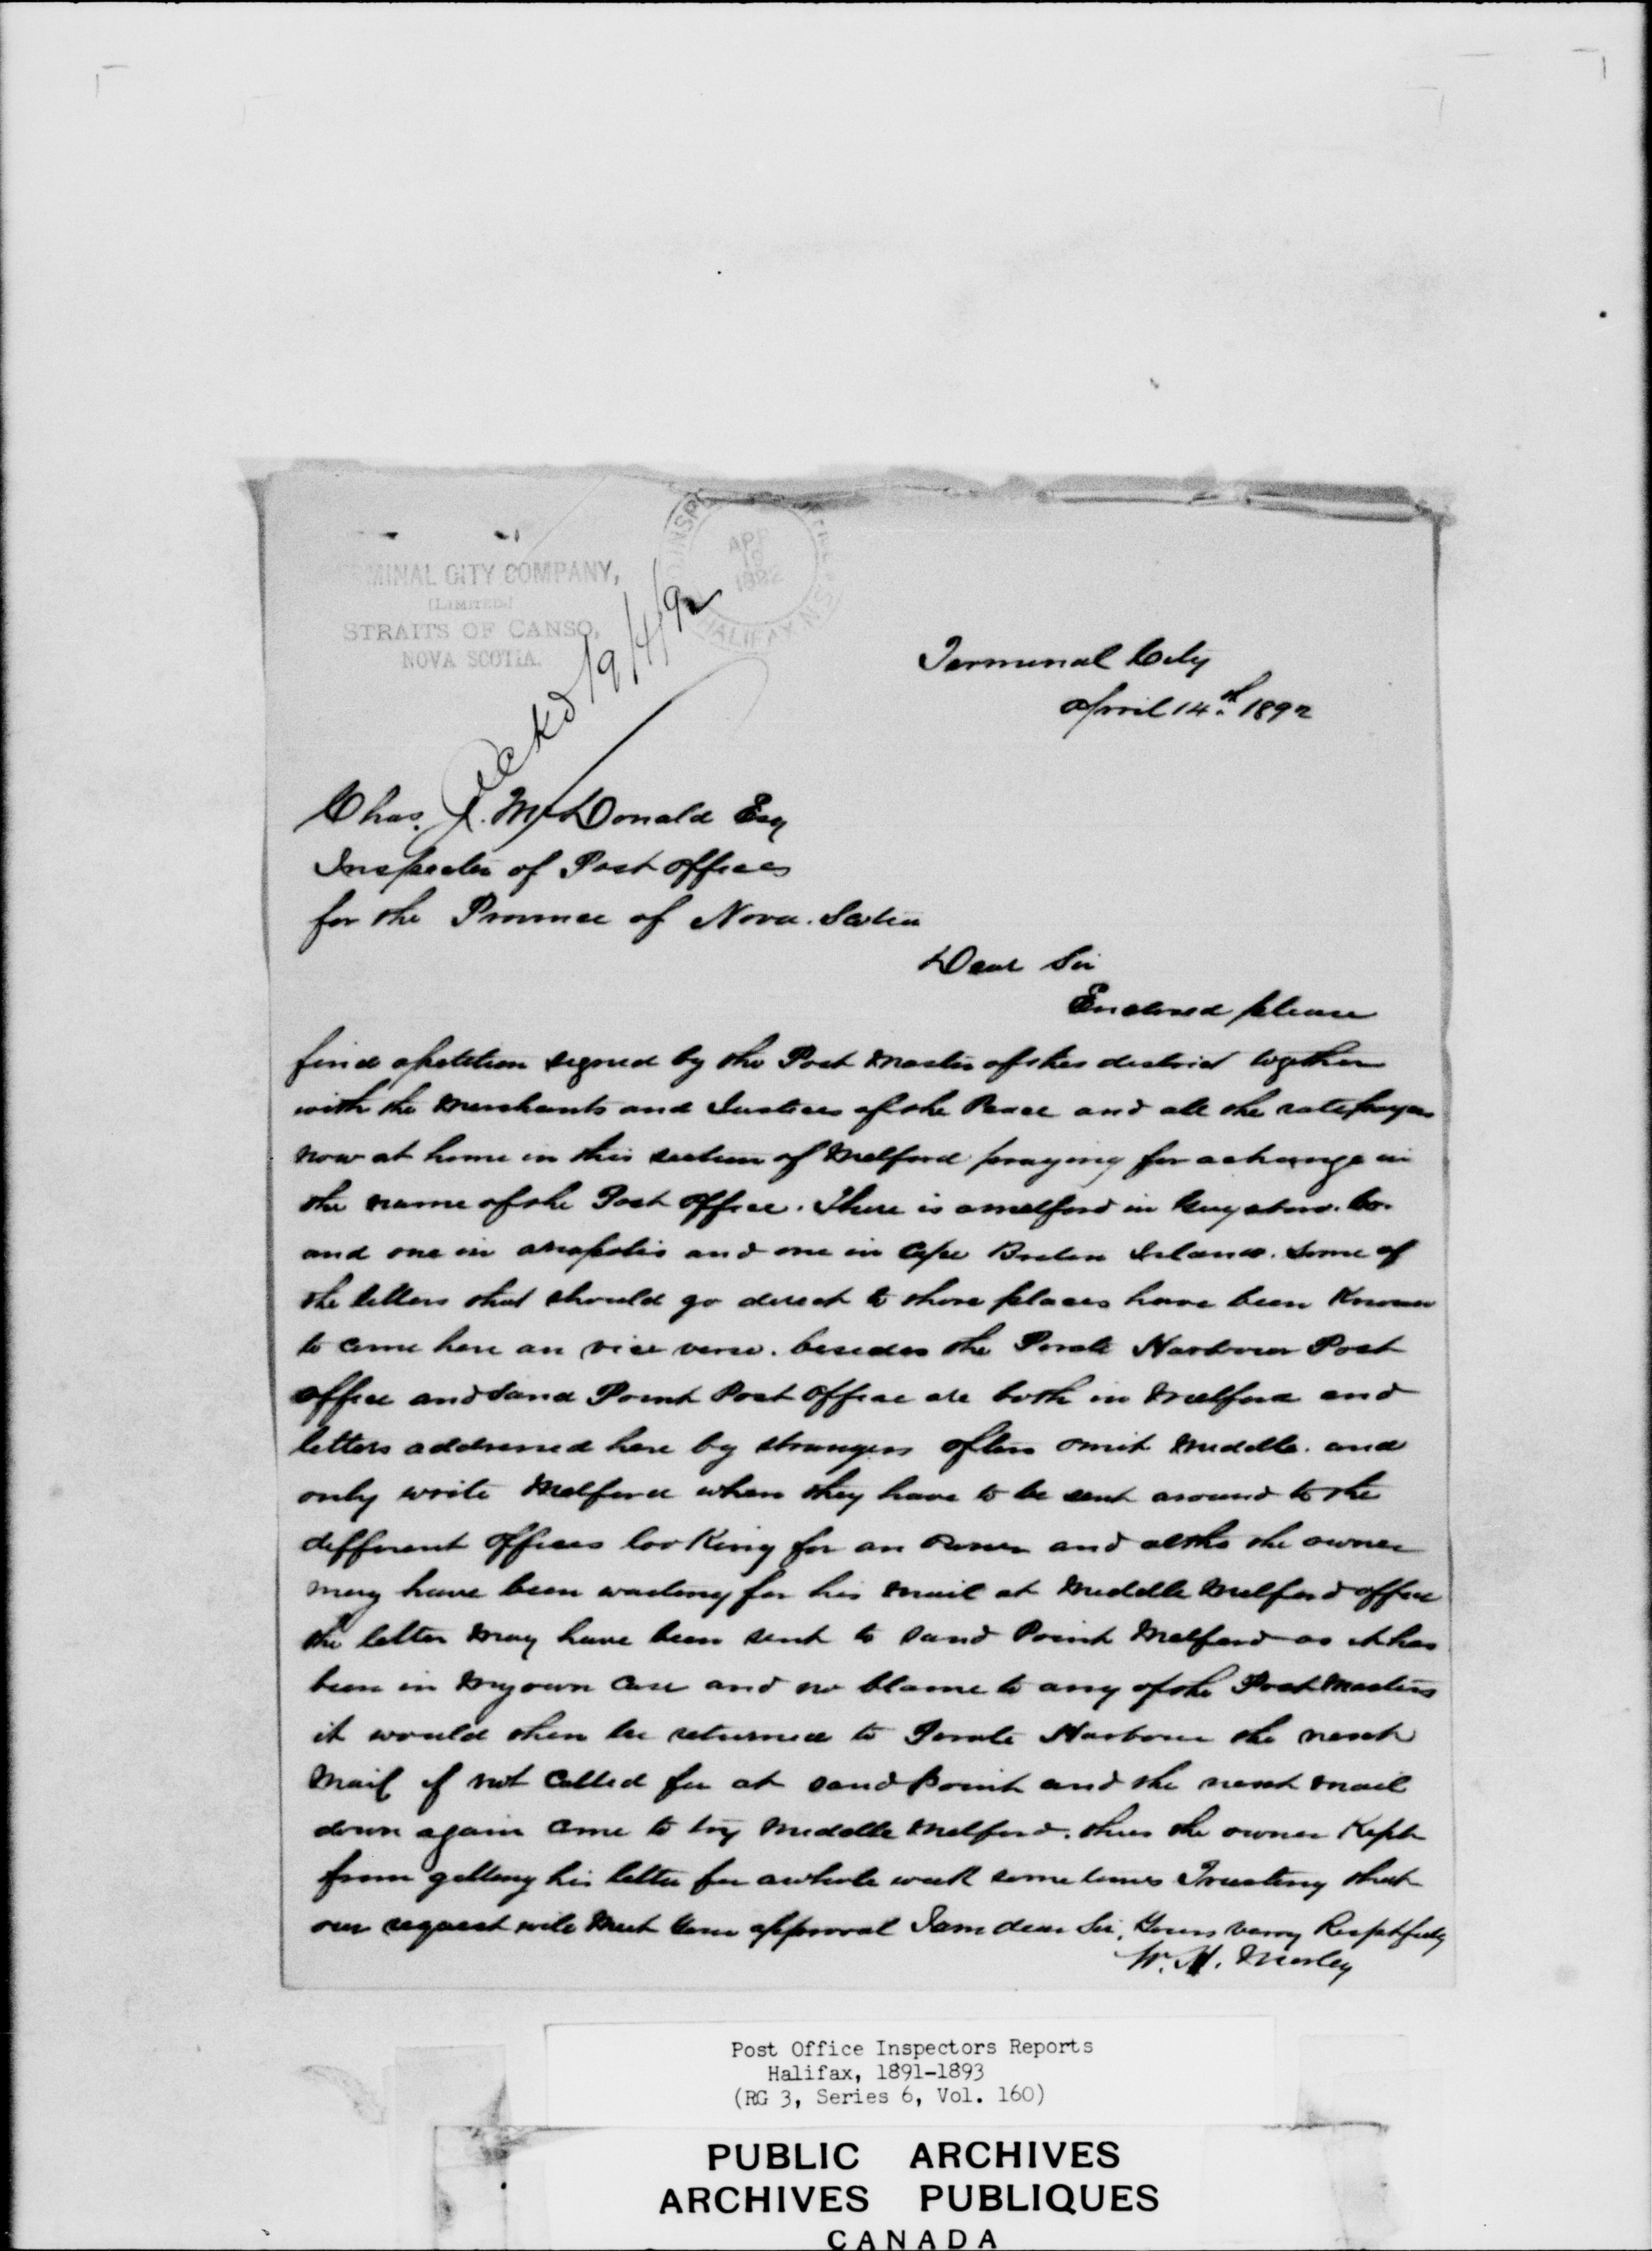 MINAL CITY COMPANY,
(LIMITED.)
STRAITS OF CANSO,
NOVA SCOTIA.
INSPE
APR
19
1892
HALIFAX N.S.
Ackd 19/4/92
Terminal City
April 14th 1892
Chas. J. McDonald Esq
Inspector of Post offices
for the Province of Nova. Scotia
Dear Sir
Enclosed please
find a petition signed by the Post Master of this district together
with the Merchants and Justices of the Peace and all the ratepayers
now at home in this section of Melford praying for a change in
the name of the Post Office. There is a melford in Guysboro. Co.
and one in anapolis and one in Cape Breton Island. Some of
the letters that should go direct to those places have been Known
to come here an vice verse. besides the Pirate Harbour Post
office and Sand Point Post Office are both in Melford and
letters addressed here by strangers often omit Middle. and
only write Melford when they have to be sent around to the
different offices looking for an owner and altho the owner
may have been waiting for his mail at Middle Melford office
the letter may have been sent to Sand Point Melford as it has
been in my own case and no blame to any of the Post Masters
it would then be returned to Pirate Harbour the next
Mail if not Called for at Sand Point and the next mail
down again come to Middle Melford. thus the owner Kept
from getting his letter for a whole week some times Trusting that
our request will Meet Your approval I am dear Sir, Yours verry Respetfuly
W. H.
Post Office Inspectors Reports
Halifax, 1891-1893
(RG 3, Series 6, Vol. 160)
PUBLIC ARCHIVES
ARCHIVES PUBLIQUES
CANADA